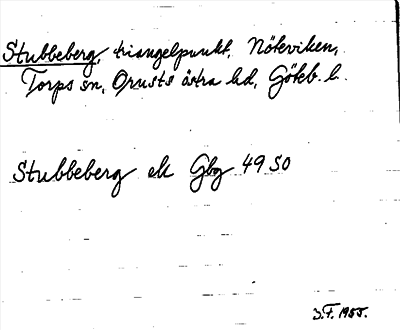 Stubbeberg, triangelpunkt, Nötviken,
Torps sn, Orusts östra hd, Göteb. l.
Stubbeberg ek Gbg 49 SO
J.F. 1955.